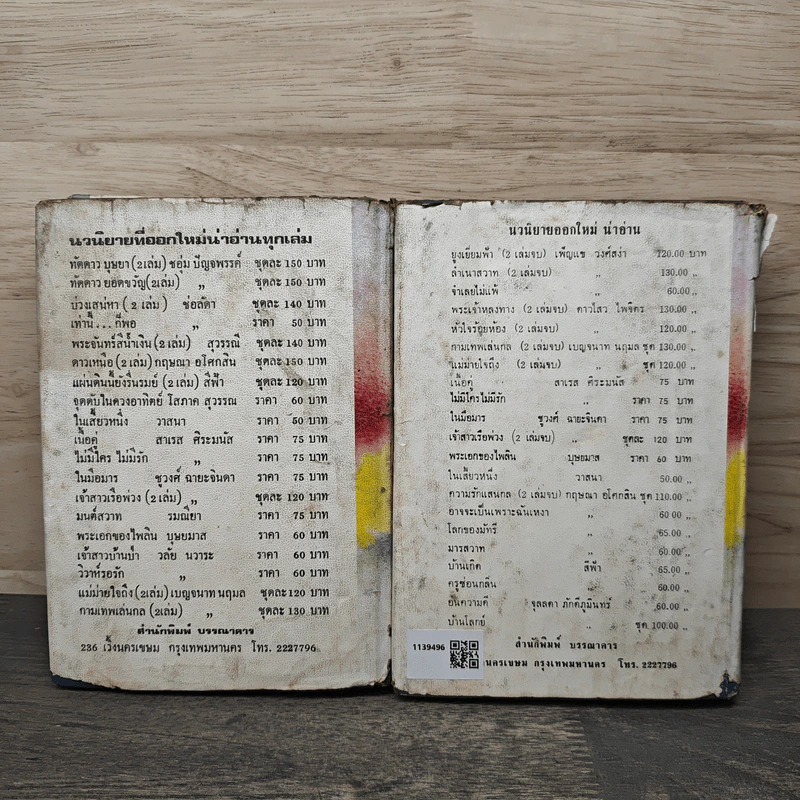 นวนิยายที่ออกใหม่น่าอ่านทุกเล่ม
ทัดดาว บุษยา (2เล่ม) ชอุ่ม ปัญจพรรค์ ชุดละ 150 บาท
ทัดดาว ยอดขวัญ(2เล่ม) „ ชุดละ 150 บาท
บ่วงเสน่หา ( 2 เล่ม ) ช่อลัดา ชุดละ 140 บาท
เท่านี้ . . . ก็พอ „ ราคา 50 บาท
พระจันทร์สีน้ำเงิน (2เล่ม) สุวรรณี ชุดละ 140 บาท
ดาวเหนือ (2 เล่ม) กฤษณา อโศกสิน ชุดละ 150 บาท
แผ่นดินนี้ยังรื่นรมย์ (2 เล่ม) สีฟ้า ชุดละ 120 บาท
จุดดับในดวงอาทิตย์ โสภาค สุวรรณ ราคา 60 บาท
ในเสี้ยวหนึ่ง วาสนา ราคา 50 บาท
เนื้อคู่ สาเรส ศิระมนัส ราคา 75 บาท
ไม่มีใคร ไม่มีรัก „ ราคา 75 บาท
ในมือมาร ชูวงศ์ ฉายะจินดา ราคา 75 บาท
เจ้าสาวเรือพ่วง (2 เล่ม) „ ชุดละ 120 บาท
มนต์สวาท รมณียา ราคา 75 บาท
พระเอกของไพลิน บุษยมาส ราคา 60 บาท
เจ้าสาวบ้านป่า วลัย นวาระ ราคา 60 บาท
วิวาห์รอรัก „ ราคา 60 บาท
แม่ม่ายใจถึง (2เล่ม) เบญจนาท นฤมล ชุดละ 120 บาท
กามเทพเล่นกล (2เล่ม) „ ชุดละ 130 บาท
สำนักพิมพ์ บรรณาคาร
236 เวิ้งนครเขษม กรุงเทพมหานคร โทร. 2227796
นวนิยายออกใหม่ น่าอ่าน
ยูงเยี่ยมฟ้า (2 เล่มจบ) เพ็ญแข วงศ์สง่า 120.00 บาท
ลำเนาสวาท (2 เล่มจบ) „ 130.00 „
จำเลยไม่แพ้ „ 60.00 „
พระเจ้าหลงทาง (2 เล่มจบ) ดาวไสว ไพจิตร 130.00 „
หัวใจร้อยห้อง (2 เล่มจบ) „ 120.00 „
กามเทพเล่นกล (2 เล่มจบ) เบญจนาท นฤมล ชุด 130.00 „
แม่ม่ายใจถึง (2 เล่มจบ) „ ชุด 120.00 „
เนื้อคู่ สาเรส ศิระมนัส 75 บาท
ไม่มีใครไม่มีรัก „ ราคา 75 บาท
ในมือมาร ชูวงศ์ ฉายะจินดา ราคา 75 บาท
เจ้าสาวเรือพ่วง (2 เล่มจบ) „ ชุดละ 120 บาท
พระเอกของไพลิน บุษยมาส ราคา 60 บาท
ในเสี้ยวหนึ่ง วาสนา 50.00 „
ความรักแสนกล (2 เล่มจบ) กฤษณา อโศกสิน ชุด 110.00 „
อาจจะเป็นเพราะฉันเหงา „ 60 00 „
โลกของมัทรี „ 65.00 „
มารสวาท „ 60.00 „
บ้านเกิด สีฟ้า 65.00 „
ครูซ่อนกลิ่น „ 60.00 „
อันความดี จุลลดา ภักดีภูมินทร์ 60.00 „
บ้านโลกย์ „ ชุด 100.00 „
สำนักพิมพ์ บรรณาคาร
นครเขษม กรุงเทพมหานคร โทร. 2227796
1139496